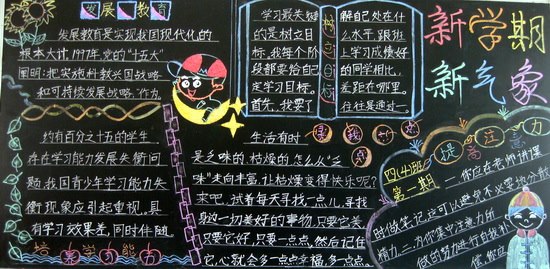 发展 教育
发展教育是实现我国现代化的
根本大计.1997年党的"十五大"
阐明:把实施科教兴国战略
和可持续发展战略"作为
约有百分之十五的学生
存在学习能力发展失衡问
题,我国青少年学习能力失
衡现象应引起重视,具
有学习效果差,同时伴随
培养学习能力
学习最关键
的是树立目
标,我每个阶
段都要给自己
定学习目标。
首先,我要了
树立目标
解自己处在什
么水平,跟班
上学习成绩好
的同学相比,
差距在哪里,
往往是通过一
新学期
新气象
生活有时
是乏味的.枯燥的.怎么从"乏
味"走向丰富,让枯燥变得快乐呢?
来吧,试着每天寻找一点儿,寻找
身边一切美好的事物,只要它美,
只要它好,只要一点点,然后记住
它,心就会多一点点幸福,多一点点
提高注意力
四(4)班
第一期
一.你应在老师讲课
时做笔记,这可以避免不必要的分散
精力.二.为你集中注意力所
做的努力进行自我补
偿.做应